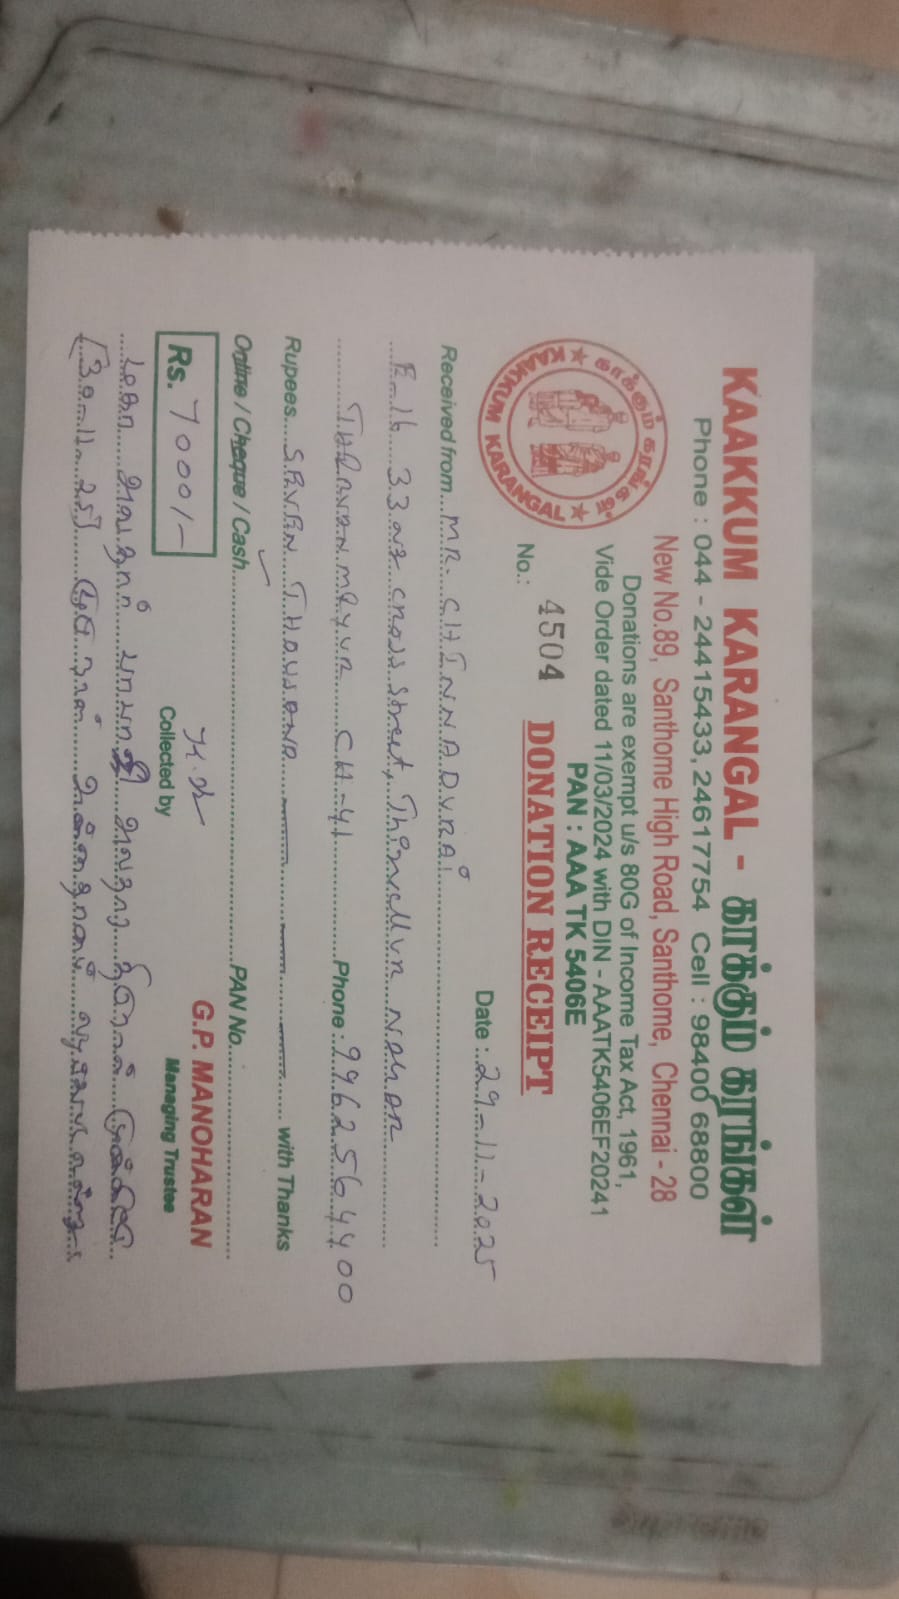 KAAKKUM KARANGAL - காக்கும் கரங்கள்
Phone : 044 - 24415433, 24617754 Cell : 98400 68800
New No.89, Santhome High Road, Santhome, Chennai - 28
Donations are exempt u/s 80G of Income Tax Act, 1961,
Vide Order dated 11/03/2024 with DIN - AAATK5406EF20241
PAN : AAA TK 5406E
காக்கும் கரங்கள்
★ KAAKKUM KARANGAL ★
No.: 4504 DONATION RECEIPT
Date : 29-11-2025
Received from MR. CHINNADURAI
E-16 33rd cross street, Thiruvalluvar Nagar
Thiruvanmiyur CH-41 Phone : 9962564400
Rupees SEVEN THOUSAND with Thanks
Online / Cheque / Cash ✓ PAN No.
Rs. 7000/-
Collected by
G.P. MANOHARAN
Managing Trustee
(30-11-25)